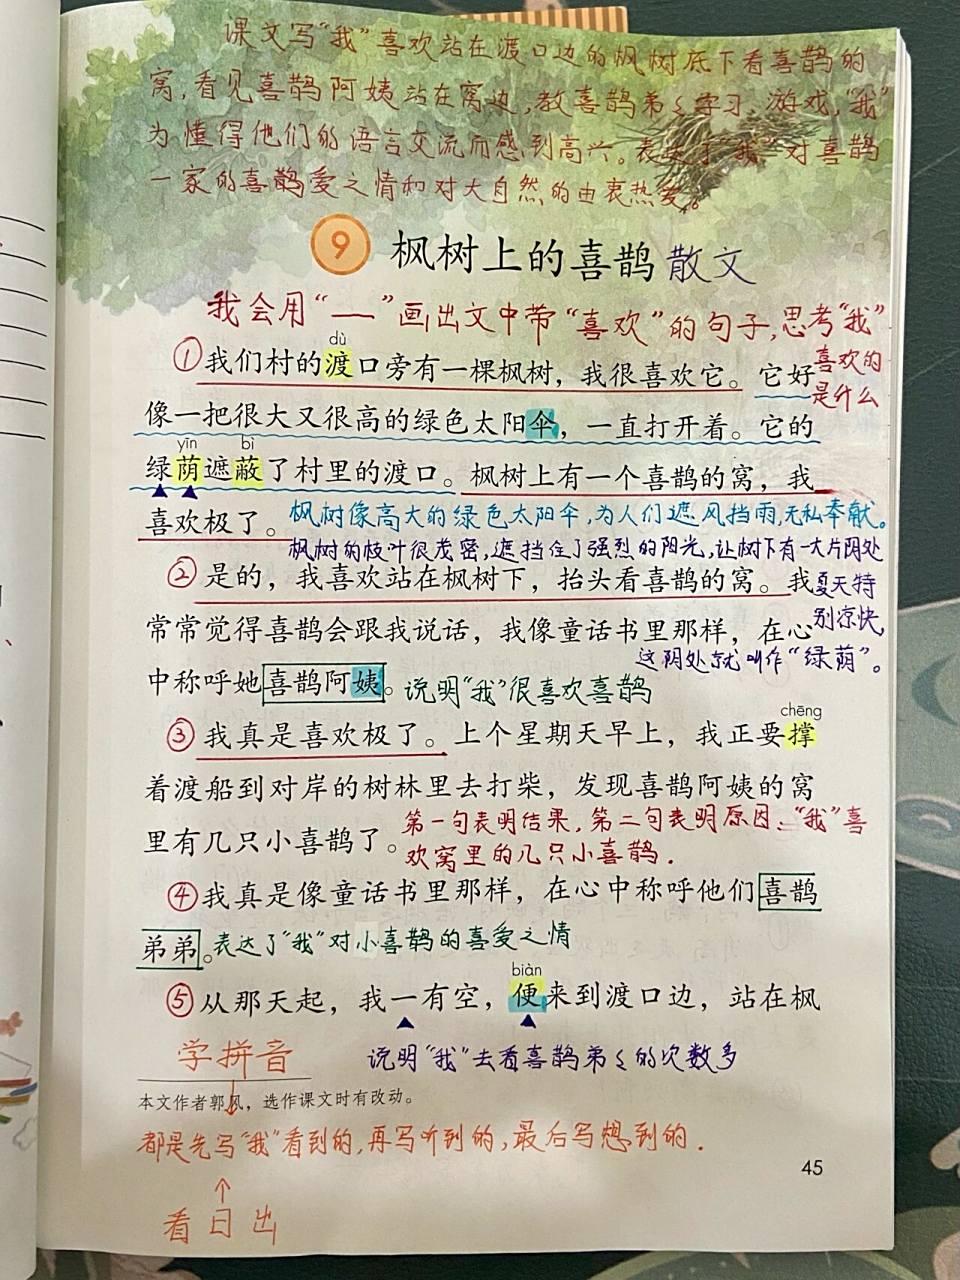 课文写“我”喜欢站在渡口边的枫树底下看喜鹊的
窝,看见喜鹊阿姨站在窝边,教喜鹊弟々学习、游戏,“我”
为懂得他们的语言交流而感到高兴。表达了“我”对喜鹊
一家的喜鹊爱之情和对大自然的由衷热爱。
9 枫树上的喜鹊 散文
我会用“——”画出文中带“喜欢”的句子,思考“我”
喜欢的
是什么
dù
①我们村的渡口旁有一棵枫树，我很喜欢它。它好
像一把很大又很高的绿色太阳伞，一直打开着。它的
yīn bì
绿荫遮蔽了村里的渡口。枫树上有一个喜鹊的窝，我
喜欢极了。
枫树像高大的绿色太阳伞,为人们遮风挡雨,无私奉献。
枫树的枝叶很茂密,遮挡住了强烈的阳光,让树下有一大片阴处
夏天特
别凉快,
这阴处就叫作“绿荫”。
②是的，我喜欢站在枫树下，抬头看喜鹊的窝。我
常常觉得喜鹊会跟我说话，我像童话书里那样，在心
中称呼她喜鹊阿姨。
说明“我”很喜欢喜鹊
chēng
③我真是喜欢极了。上个星期天早上，我正要撑
着渡船到对岸的树林里去打柴，发现喜鹊阿姨的窝
里有几只小喜鹊了。
第一句表明结果,第二句表明原因、“我”喜
欢窝里的几只小喜鹊.
④我真是像童话书里那样，在心中称呼他们喜鹊
弟弟。
表达了“我”对小喜鹊的喜爱之情
biàn
⑤从那天起，我一有空，便来到渡口边，站在枫
说明“我”去看喜鹊弟々的次数多
学拼音
本文作者郭风，选作课文时有改动。
都是先写“我”看到的,再写听到的,最后写想到的.
45
看日出